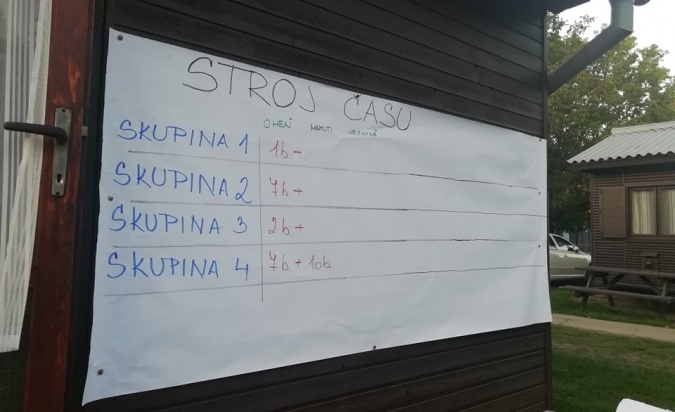 STROJ ČASU
OHEŇ
SKUPINA 1 1b+
SKUPINA 2 7b+
SKUPINA 3 2b+
SKUPINA 4 7b + 10b